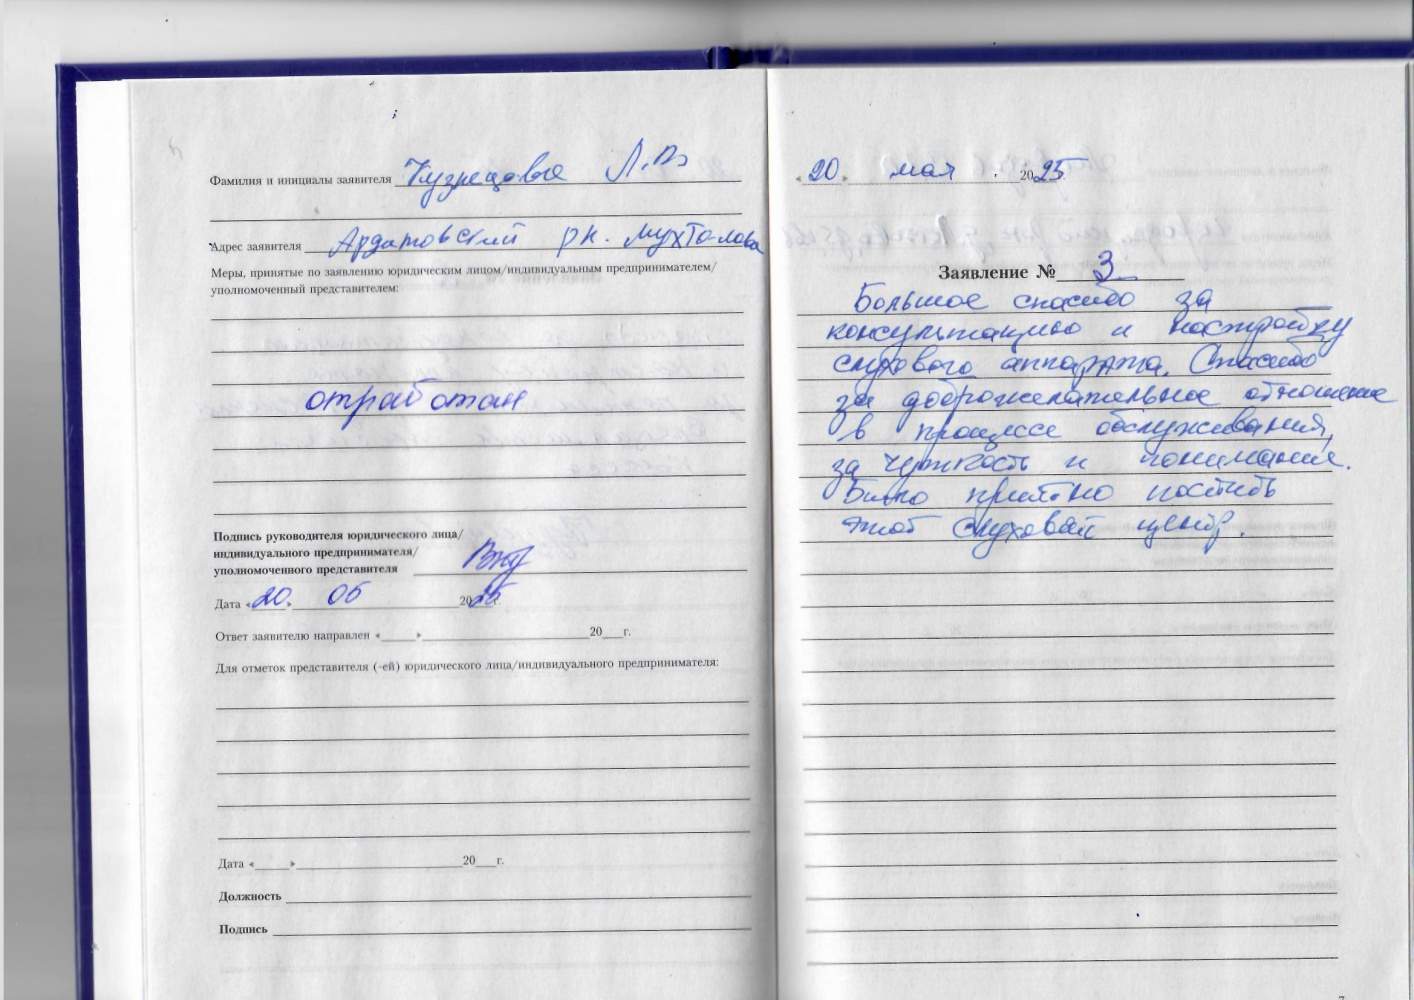 Фамилия и инициалы заявителя Кузнецова Л.В.
Адрес заявителя Ардатовский рн. Мухтолова
Меры, принятые по заявлению юридическим лицом/индивидуальным предпринимателем/
уполномоченный представителем:
отработан
Подпись руководителя юридического лица/
индивидуального предпринимателя/
уполномоченного представителя
Дата «20» 05 2025г.
Ответ заявителю направлен «____»____20__г.
Для отметок представителя (-ей) юридического лица/индивидуального предпринимателя:
Дата «____»____20__г.
Должность
Подпись
«20» мая 2025
Заявление № 3
Большое спасибо за
консультацию и настройку
слухового аппарата. Спасибо
за доброжелательное отношение
в процессе обслуживания,
за чуткость и понимание.
Было приятно посетить
этот слуховой центр.
7